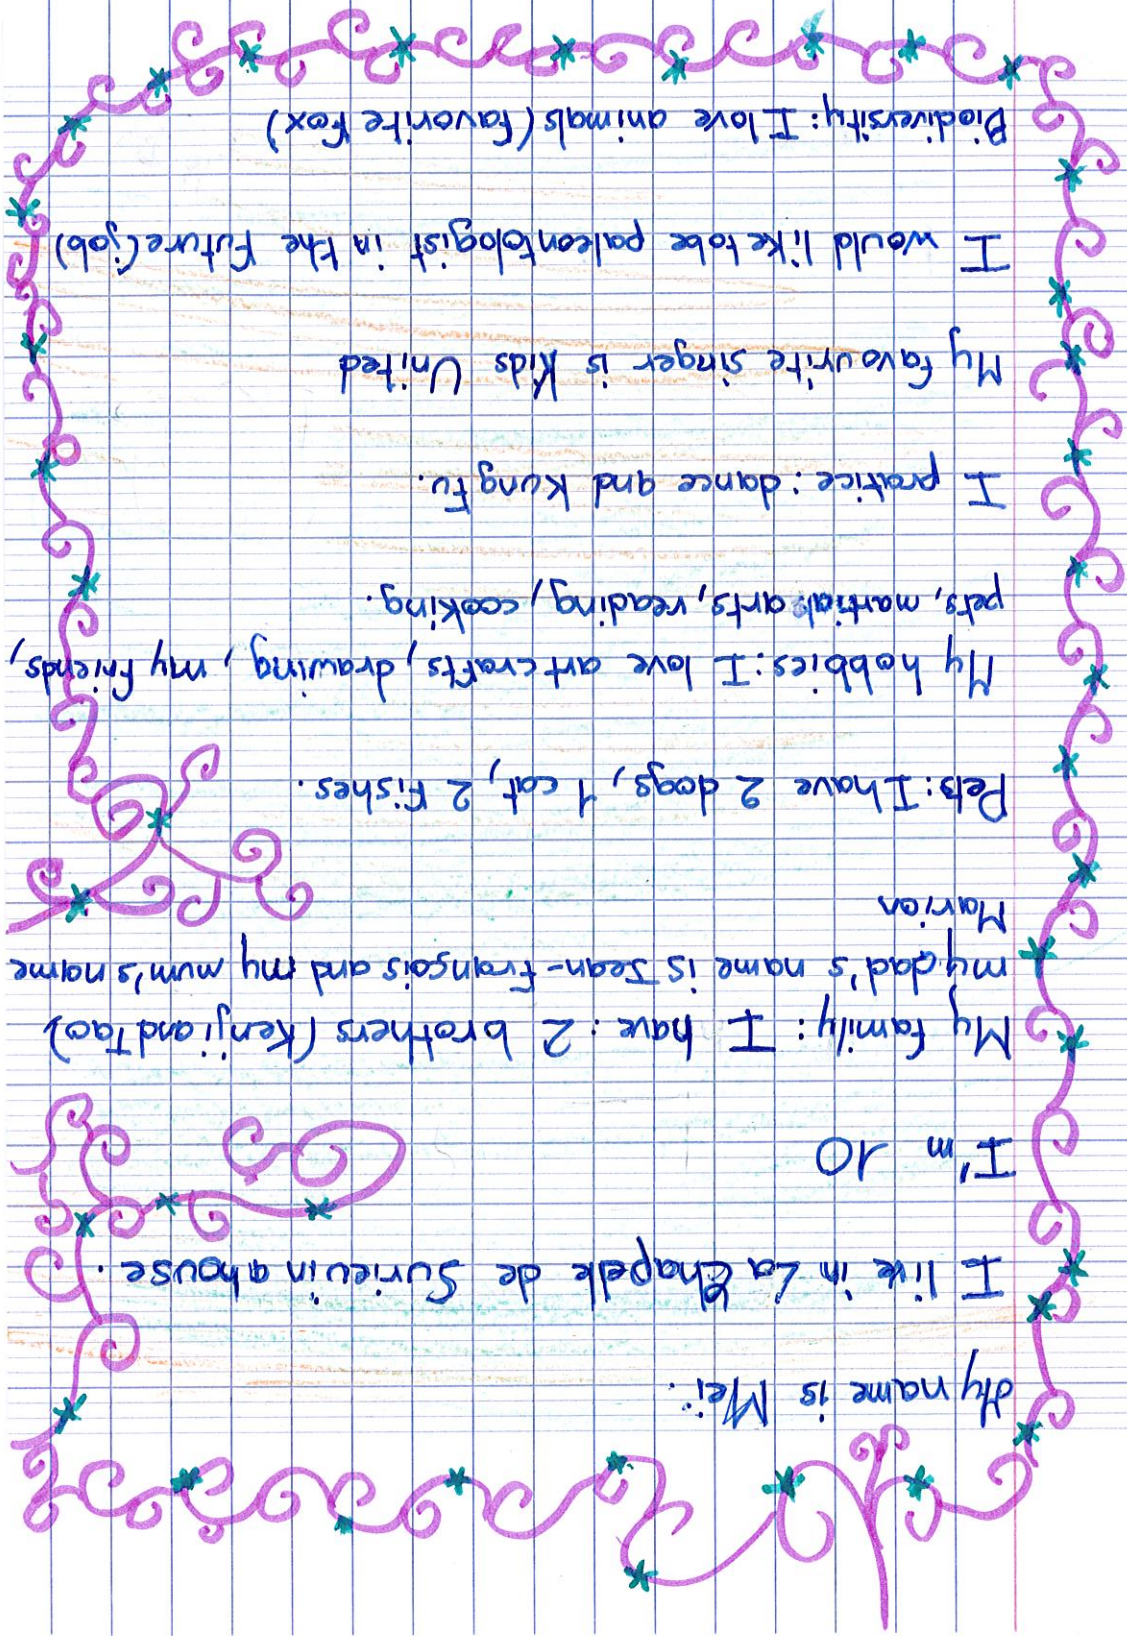 My name is Mei.
I live in La Chapelle de Surieu in a house.
I'm 10
My family: I have: 2 brothers (Kenji and Tao)
my dad's name is Jean-François and my mum's name
Marion
Pets: I have 2 dogs, 1 cat, 2 Fishes.
My hobbies: I love art crafts, drawing, my friends,
pets, martial arts, reading, cooking.
I pratice: dance and Kung Fu.
My favourite singer is Kids United
I would like to be paleontologist in the future (job)
Biodiversity: I love animals (favorite Fox)